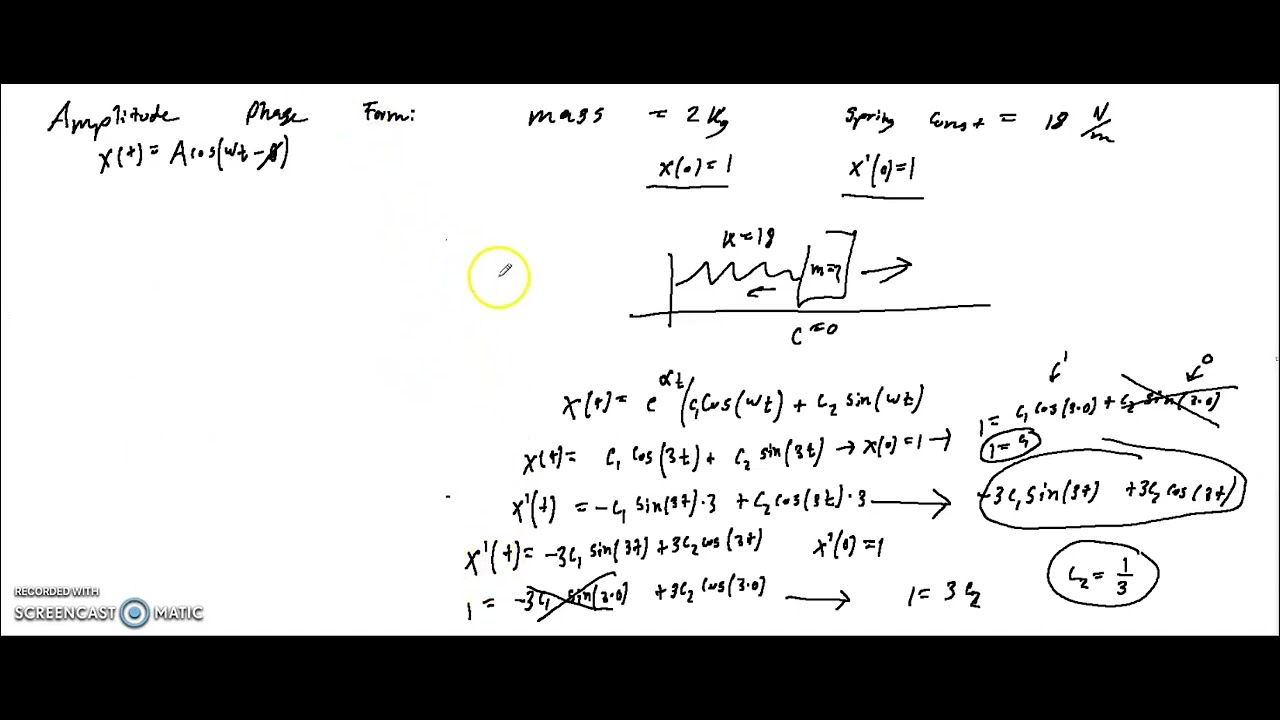 Amplitude Phase Form: mass = 2 Kg Spring Const = 18 N/m
x(t) = A cos(wt - θ)
x(0) = 1 x'(0) = 1
K = 18
m = 2
C = 0
x(t) = e^αt (c₁ cos(wt) + c₂ sin(wt)
1 0
1 = c₁ cos(3·0) + c₂ sin(3·0)
x(t) = c₁ cos(3t) + c₂ sin(3t) → x(0) = 1 →
1 = c₁
x'(t) = -c₁ sin(3t)·3 + c₂ cos(3t)·3 → -3c₁ sin(3t) + 3c₂ cos(3t)
x'(t) = -3c₁ sin(3t) + 3c₂ cos(3t) x'(0) = 1
1 = -3c₁ sin(3·0) + 3c₂ cos(3·0) → 1 = 3c₂
c₂ = 1/3
RECORDED WITH
SCREENCAST MATIC